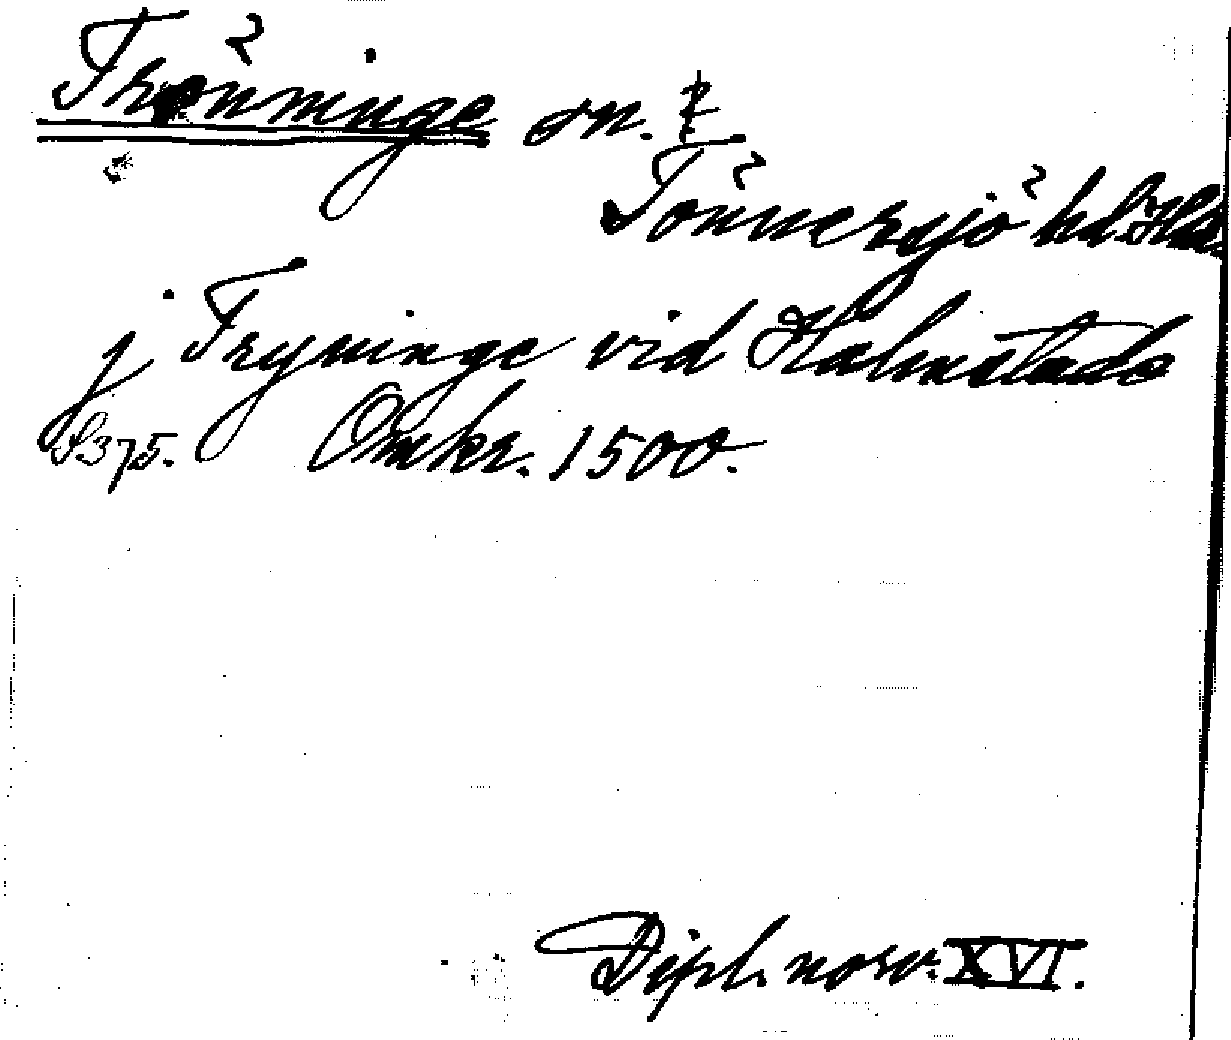 Trönninge sn. ‡
Tönnersjö hd. Hall.
j Tryninge vid Halmstade
S. 375. Omkr. 1500.
Dipl. norv. XVI.